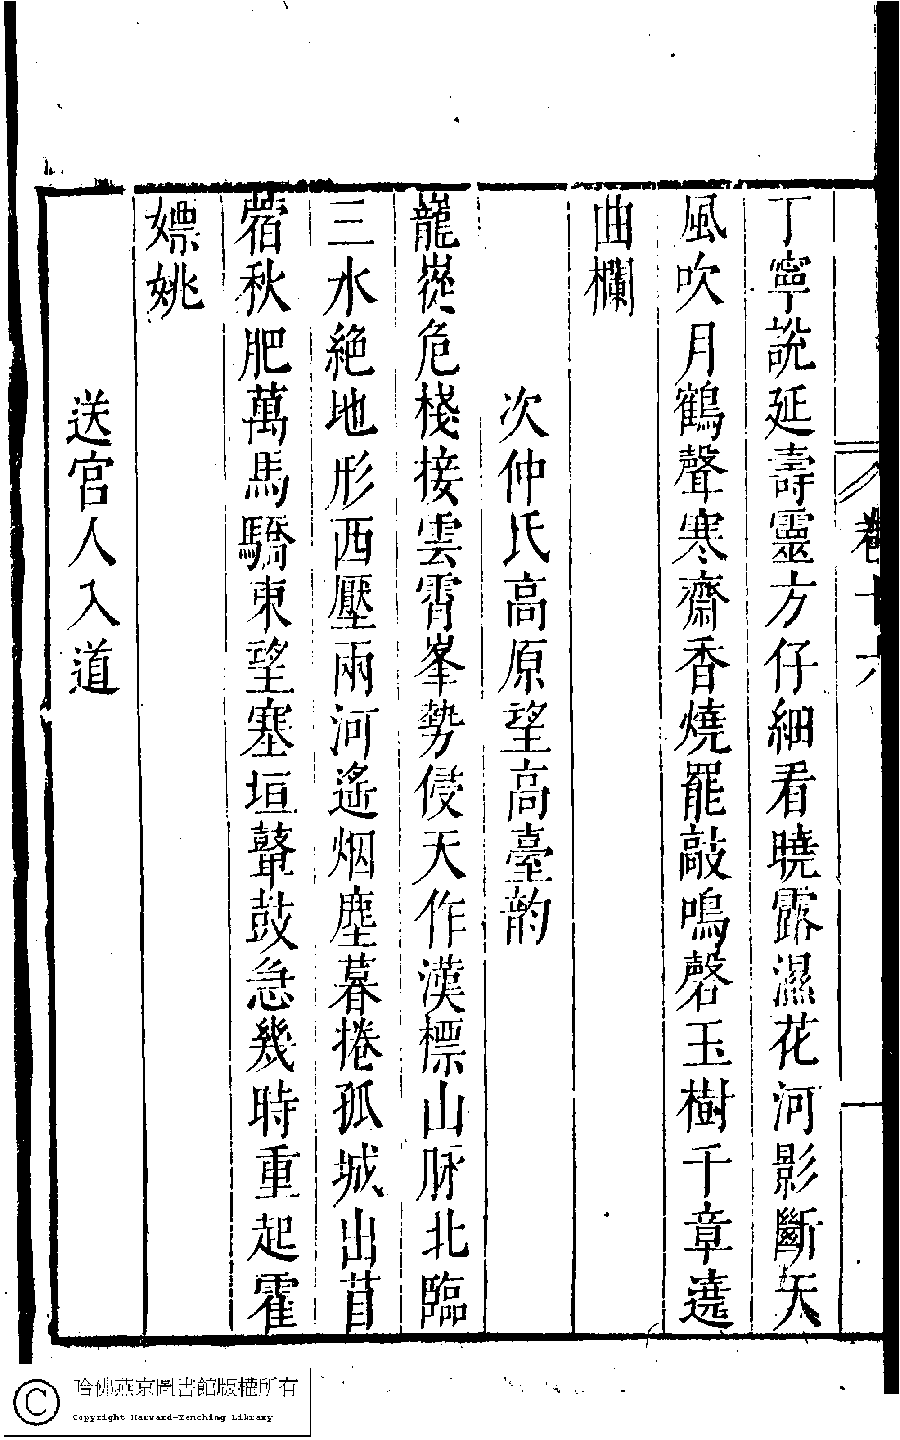 卷十六
丁寧說延壽靈方仔細看曉露濕花河影斷天
風吹月鶴聲寒齋香燒罷敲鳴磬玉樹千章遶
曲欄
次仲氏高原望高臺韵
巃嵸危棧接雲霄峯勢侵天作漢標山脉北臨
三水絕地形西壓兩河遙烟塵暮捲孤城出苜
蓿秋肥萬馬驕東望塞垣鼙鼓急幾時重起霍
嫖姚
送宮人入道
哈佛燕京圖書館版權所有
Copyright Harvard-Yenching Library